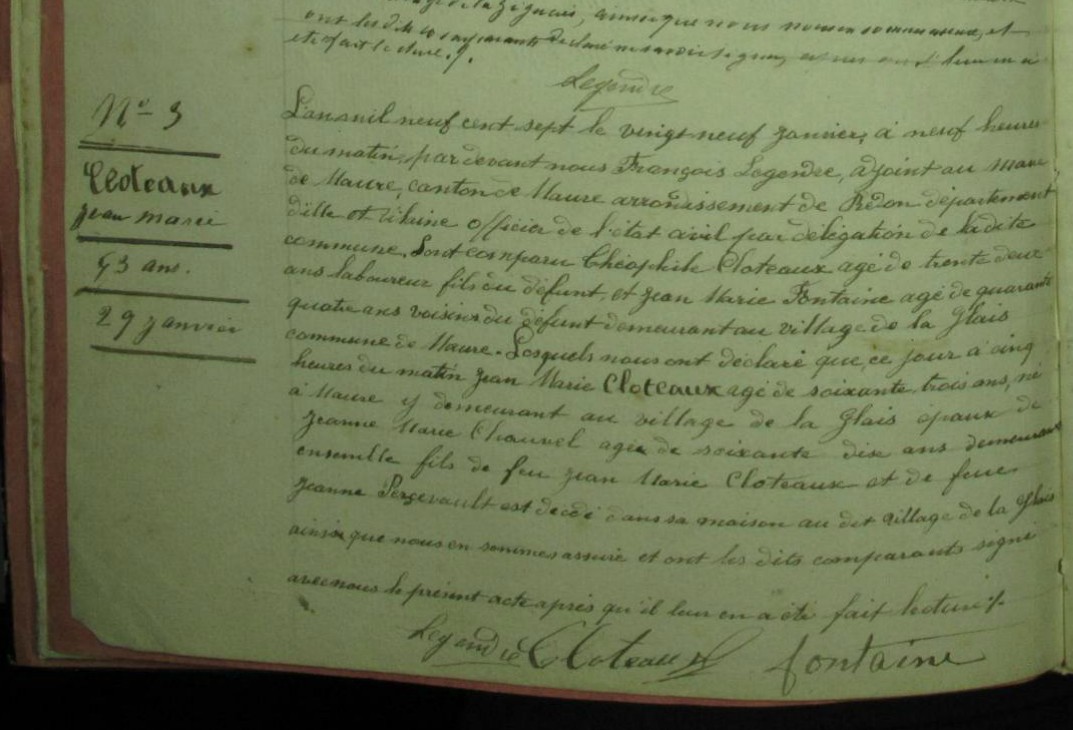 ainsi que nous nous en sommes assuré, et
ont les dits comparants déclaré ne savoir signer,
été fait lecture ./.
Legendre
N° 3
Cloteaux
Jean Marie
63 ans.
29 Janvier
L'an mil neuf cent sept le vingt neuf Janvier, à neuf heures
du matin, par devant nous François Legendre, adjoint au Maire
de Maure, canton de Maure arrondissement de Redon département
d'ille et Vilaine officier de l'état civil par déligation de ladite
commune. Sont comparu Théophile Cloteaux agé de trente deux
ans laboureur fils du défunt, et Jean Marie Fontaine agé de quarante
quatre ans voisins du défunt demeurant au village de la Glais
commune de Maure. Lesquels nous ont déclaré que, ce jour à cinq
heures du matin Jean Marie Cloteaux agé de soixante trois ans, né
à Maure y demeurant au village de la Glais époux de
Jeanne Marie Chauvel agée de soixante dix ans demeurant
ensemble fils de feu Jean Marie Cloteaux et de feue
Jeanne Perçevault est décédé dans sa maison au dit village de la Glais
ainsi que nous en sommes assuré et ont les dits comparants signé
avec nous le présent acte après qu'il leur en a été fait lecture ./.
Legendre Cloteaux fontaine